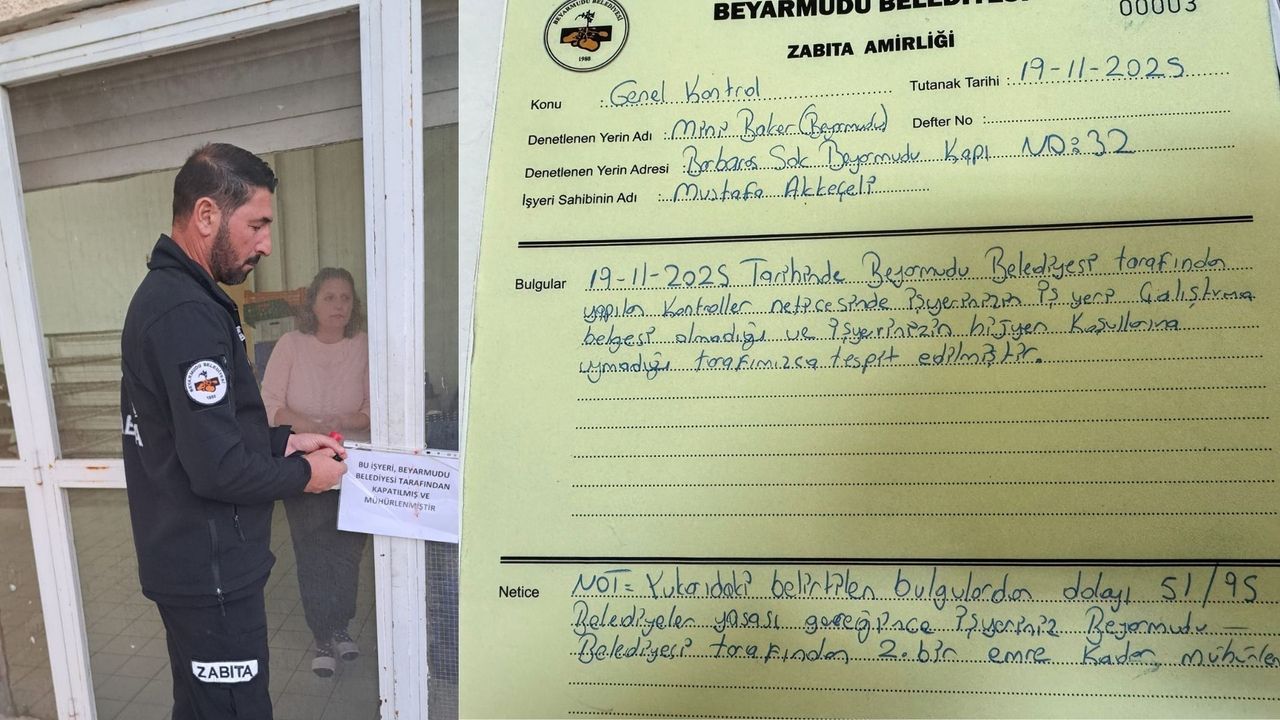 BEYARMUDU BELEDİYESİ
1988
ZABITA
BU İŞYERİ, BEYARMUDU
BELEDİYESİ TARAFINDAN
KAPATILMIŞ VE
MÜHÜRLENMİŞTİR
BEYARMUDU BELEDİYESİ
1988
BEYARMUDU BELEDİYESİ
00003
ZABITA AMİRLİĞİ
Konu : Genel Kontrol
Tutanak Tarihi : 19-11-2025
Denetlenen Yerin Adı : Mini Baker (Beyarmudu)
Defter No :
Denetlenen Yerin Adresi : Barbaros Sok Beyarmudu Kapı NO:32
İşyeri Sahibinin Adı : Mustafa Akkeçeli
Bulgular 19-11-2025 Tarihinde Beyarmudu Belediyesi tarafından
yapılan kontroller neticesinde işyerinizin iş yeri Çalıştırma
belgesi olmadığı ve işyerinizin hijyen Koşullarına
uymadığı tarafımızca tespit edilmiştir.
Netice NOT= Yukarıdaki belirtilen bulgulardan dolayı 51/95
Belediyeler yasası gereğince İşyeriniz Beyarmudu
Belediyesi tarafından 2. bir emre Kadar mühürlen